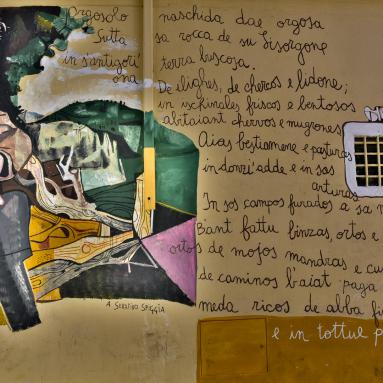 Orgosolo naschida dae orgosa
Sutta sa rocca de su Lisorgone
in s'antigori' terra buscosa.
ona
De elighes, de chercos e lidone;
in ischinales friscos e bentosos
abitaiant chervos e mugrones
Aias bestiamene e pasturas
in donzi'adde e in sas
arturas
In sos campos furados a sa
Biant fattu binzas, ortos e
ortos de mojos mandras e cu
de caminos b'aiat paga
meda ricos de abba fi
e in tottue p
A SERAFINO SPIGGIA